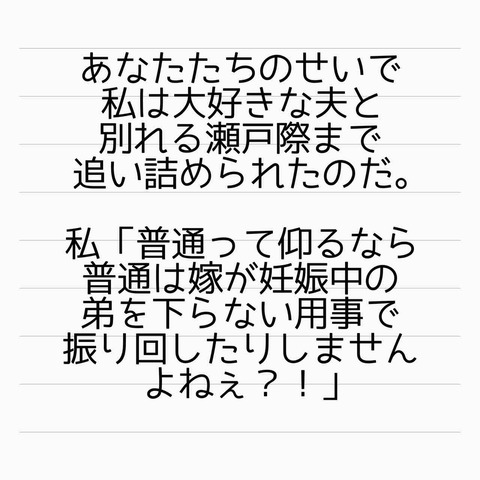 あなたたちのせいで
私は大好きな夫と
別れる瀬戸際まで
追い詰められたのだ。
私「普通って仰るなら
普通は嫁が妊娠中の
弟を下らない用事で
振り回したりしません
よねぇ？！」